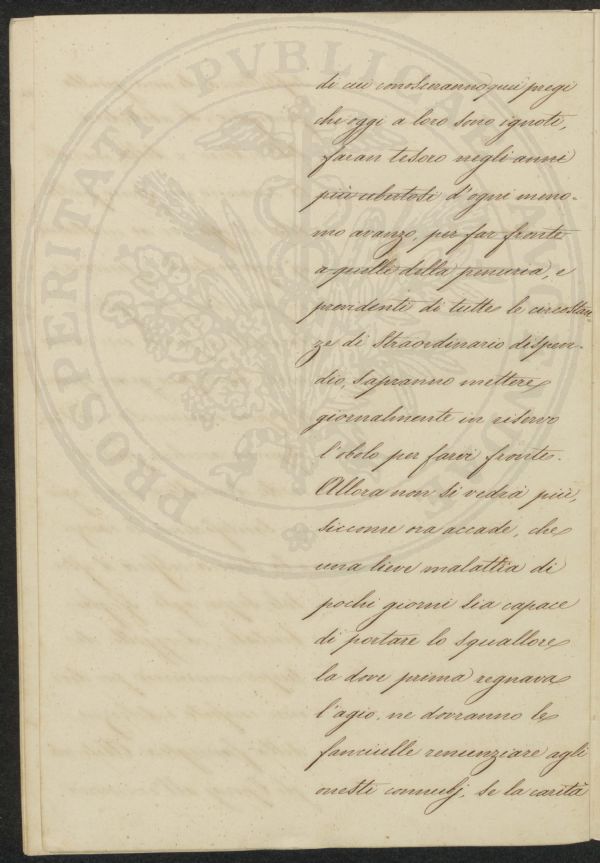 di cui conosceranno quei pregi
che oggi a loro sono ignoti,
faran tesoro negli anni
più ubertosi d'ogni meno-
mo avanzo, per far fronte
a quelli della penuria, e
previdenti di tutte le circostan-
ze di straordinario dispen-
dio, sapranno mettere
giornalmente in riserva
l'obolo per farvi fronte.
Allora non si vedrà più,
siccome ora accade, che
una lieve malattia di
pochi giorni sia capace
di portare lo squallore
la dove prima regnava
l'agio, ne dovranno le
fanciulle renunziare agli
onesti connubj, se la carità
PROSPERITATI PVBLICAE AVGENDAE